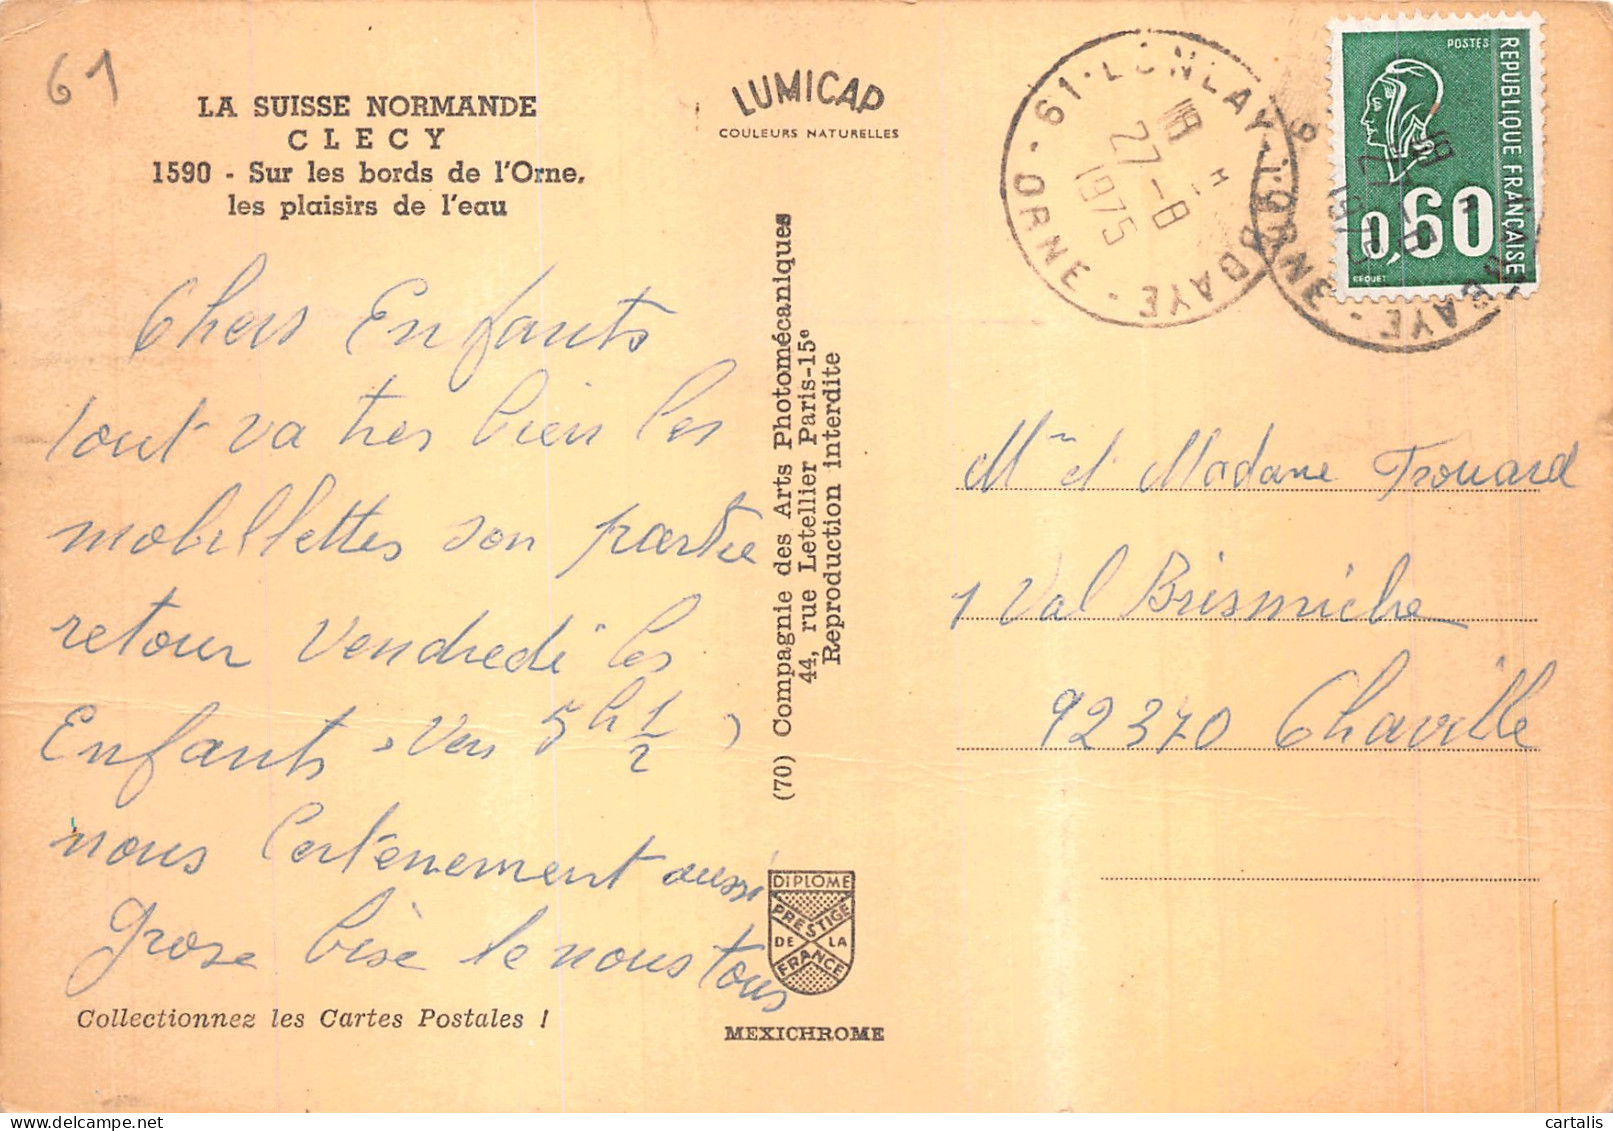 61
LA SUISSE NORMANDE
CLECY
1590 - Sur les bords de l'Orne,
les plaisirs de l'eau
LUMICAP
COULEURS NATURELLES
61 · LONLAY-L'ABBAYE - ORNE -
18 H
27-8
1975
POSTES
REPUBLIQUE FRANÇAISE
0,60
BEQUET
Chers Enfants
tout va tres bien les
mobillettes son partie
retour Vendredi les
Enfants vers 5h 1/2,
nous Certènement aussi
grose bise
nous tous
(70) Compagnie des Arts Photomécaniques
44, rue Letellier Paris-15e
Reproduction interdite
Mr et Madame Trouard
1 Val Brismiche
92370 Chaville
DIPLOME
PRESTIGE
DE LA
FRANCE
Collectionnez les Cartes Postales !
MEXICHROME
cartalis